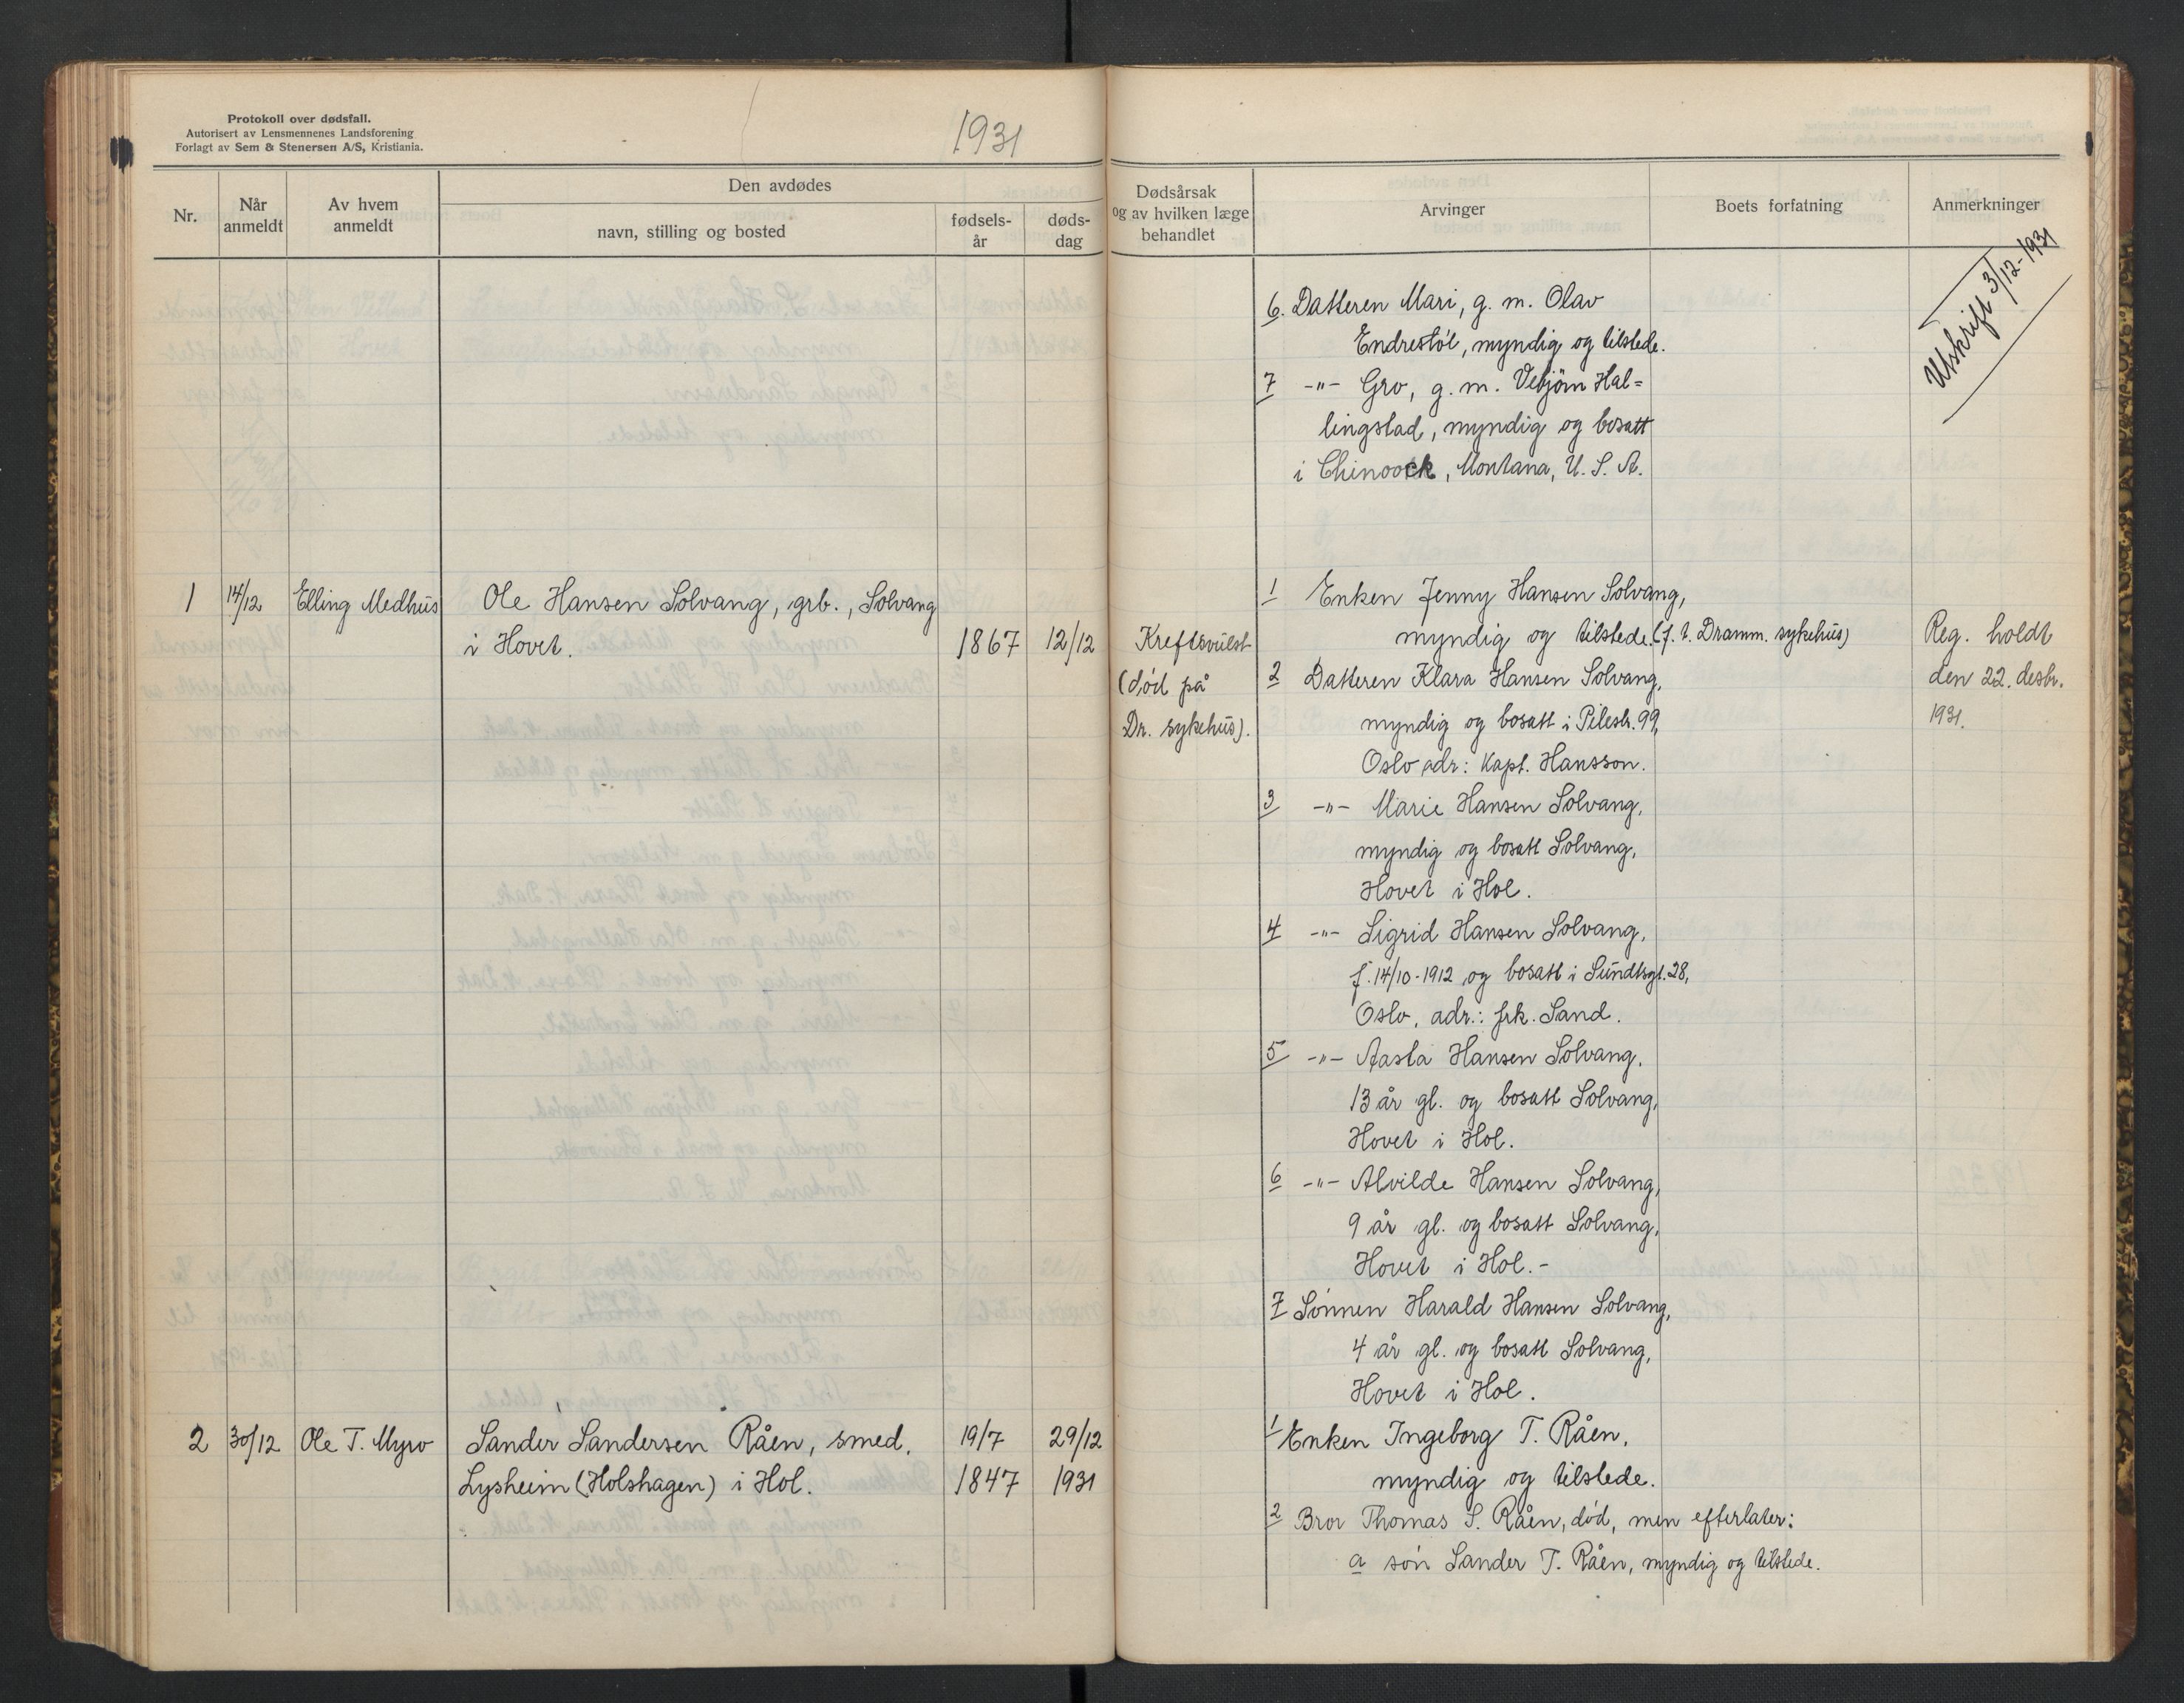 Protokoll over dødsfall.
Autorisert av Lensmennenes Landsforening
Forlagt av Sem & Stenersen A/S, Kristiania.
1931
Nr.
Når anmeldt
Av hvem anmeldt
Den avdødes
navn, stilling og bosted
fødsels-år
døds-dag
Dødsårsak og av hvilken læge behandlet
Arvinger
Boets forfatning
Anmerkninger
6. Datteren Mari, g. m. Olav
Endrestøl, myndig og tilstede.
7 -"- Gro, g. m. Vebjörn Hal=
lingstad, myndig og bosatt
i Chinoock, Montana, U. S. A.
Utskrift 3/12-1931
1 14/12 Elling Medhus Ole Hansen Solvang, grb., Solvang
i Hovet. 1867 12/12
Kreftsvulst
(död på
Dr. sykehus).
1 Enken Jenny Hansen Solvang,
myndig og tilstede. (f. t. Dramm. sykehus)
2 Datteren Klara Hansen Solvang,
myndig og bosatt i Pilestr. 99,
Oslo adr: Kapt. Hansson.
3 -"- Marie Hansen Solvang,
myndig og bosatt Solvang,
Hovet i Hol.
4 -"- Sigrid Hansen Solvang,
f. 14/10-1912 og bosatt i Sundtsgt. 28,
Oslo, adr.: frk. Sand.
5 -"- Aasta Hansen Solvang,
13 år gl. og bosatt Solvang,
Hovet i Hol.
6 -"- Alvilde Hansen Solvang,
9 år gl. og bosatt Solvang,
Hovet i Hol.-
7 Sønnen Harald Hansen Solvang,
4 år gl. og bosatt Solvang,
Hovet i Hol.
Reg. holdt
den 22. desbr.
1931.
2 30/12 Ole T. Myro Sander Sandersen Råen, smed, 19/7 29/12
Lysheim (Holshagen) i Hol. 1847 1931
1 Enken Ingeborg T. Råen,
myndig og tilstede.
2 Bror Thomas S. Råen, död, men efterlater:
a sön Sander T. Råen, myndig og tilstede.